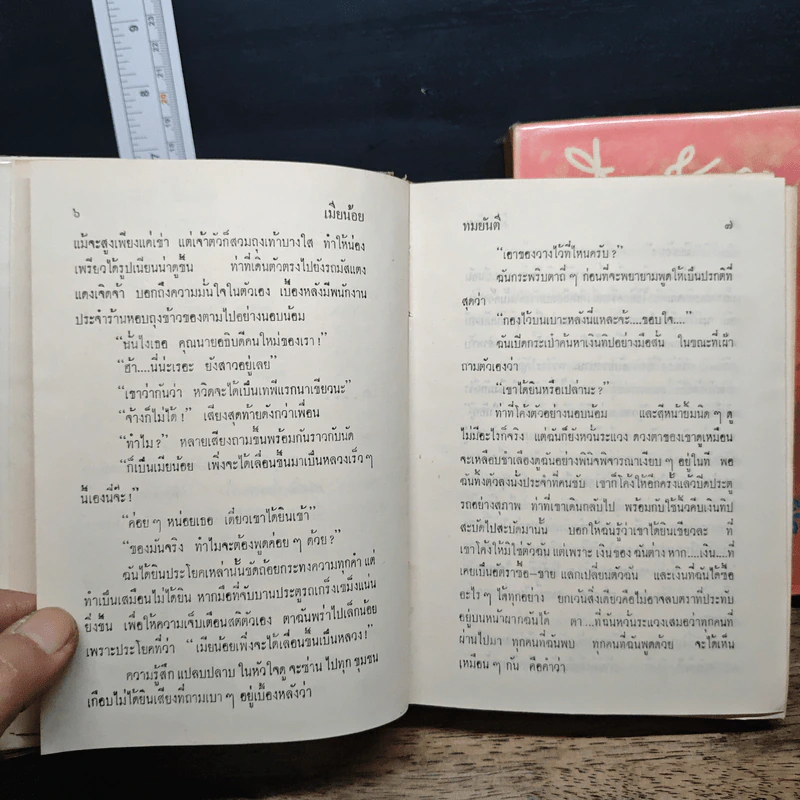 9
8
7
๖ เมียน้อย
แม้จะสูงเพียงแค่เข่า แต่เจ้าตัวก็สวมถุงเท้าบางใส ทำให้น่อง
เพรียวได้รูปเนียนน่าดูขึ้น ท่าที่เดินตัวตรงไปยังรถมัสแตง
แดงเจิดจ้า บอกถึงความมั่นใจในตัวเอง เบื้องหลังมีพนักงาน
ประจำร้านหอบถุงข้าวของตามไปอย่างนอบน้อม
“นั่นไงเธอ คุณนายอธิบดีคนใหม่ของเรา!”
“ฮ้า....นี่น่ะเรอะ ยังสาวอยู่เลย”
“เขาว่ากันว่า หวิดจะได้เป็นเทพีแรกนาเชียวนะ”
“จ้างก็ไม่ได้!” เสียงสุดท้ายดังกว่าเพื่อน
“ทำไม?” หลายเสียงถามขึ้นพร้อมกันราวกับนัด
“ก็เป็นเมียน้อย เพิ่งจะได้เลื่อนขึ้นมาเป็นหลวงเร็วๆ
นี้เองนี่จ๊ะ!”
“ค่อยๆ หน่อยเธอ เดี๋ยวเขาได้ยินเข้า”
“ของมันจริง ทำไมจะต้องพูดค่อยๆ ด้วย?”
ฉันได้ยินประโยคเหล่านั้นชัดถ้อยกระทงความทุกคำ แต่
ทำเป็นเสมือนไม่ได้ยิน หากมือที่จับบานประตูรถเกร็งเขม็งแน่น
ยิ่งขึ้น เพื่อให้ความเจ็บเตือนสติตัวเอง ตาฉันพร่าไปเล็กน้อย
เพราะประโยคที่ว่า “เมียน้อยเพิ่งจะได้เลื่อนขึ้นเป็นหลวง!”
ความรู้สึก แปลบปลาบ ในหัวใจดู จะซ่าน ไปทุก ขุมขน
เกือบไม่ได้ยินเสียงที่ถามเบาๆ อยู่เบื้องหลังว่า
ทมยันตี ๗
“เอาของวางไว้ที่ไหนครับ?”
ฉันกระพริบตาถี่ๆ ก่อนที่จะพยายามพูดให้เป็นปรกติที่
สุดว่า
“กองไว้บนเบาะหลังนี่แหละจ้ะ....ขอบใจ....”
ฉันเปิดกระเป๋าค้นหาเงินทิปอย่างมือสั่น ในขณะที่เฝ้า
ถามตัวเองว่า
“เขาได้ยินหรือเปล่านะ?”
ท่าที่โค้งตัวอย่างนอบน้อม และสีหน้ายิ้มนิดๆ ดู
ไม่มีอะไรก็จริง แต่ฉันก็ยังหวั่นระแวง ดวงตาของเขาดูเหมือน
จะเหลือบชำเลืองดูฉันอย่างพินิจพิจารณาเงียบๆ อยู่ในที พอ
ฉันทิ้งตัวลงนั่งประจำที่คนขับ เขาก็โค้งให้อีกครั้งแล้วปิดประตู
รถอย่างสุภาพ ท่าที่เขาเดินกลับไป พร้อมกับใช้นิ้วคีบเงินทิป
สะบัดไปสะบัดมานั้น บอกให้ฉันรู้ว่าเขาได้ยินเชียวละ ที่
เขาโค้งให้มิใช่ตัวฉัน แต่เพราะ เงินของ ฉันต่าง หาก....เงิน....ที่
เคยเป็นอัตราซื้อ-ขาย แลกเปลี่ยนตัวฉัน และเงินที่ฉันได้ซื้อ
อะไรๆ ได้ทุกอย่าง ยกเว้นสิ่งเดียวคือไม่อาจลบตราที่ประทับ
อยู่บนหน้าผากฉันได้ ตา....ที่ฉันหวั่นระแวงเสมอว่าทุกคนที่
ผ่านไปมา ทุกคนที่ฉันพบ ทุกคนที่ฉันพูดด้วย จะได้เห็น
เหมือนๆ กัน คือคำว่า